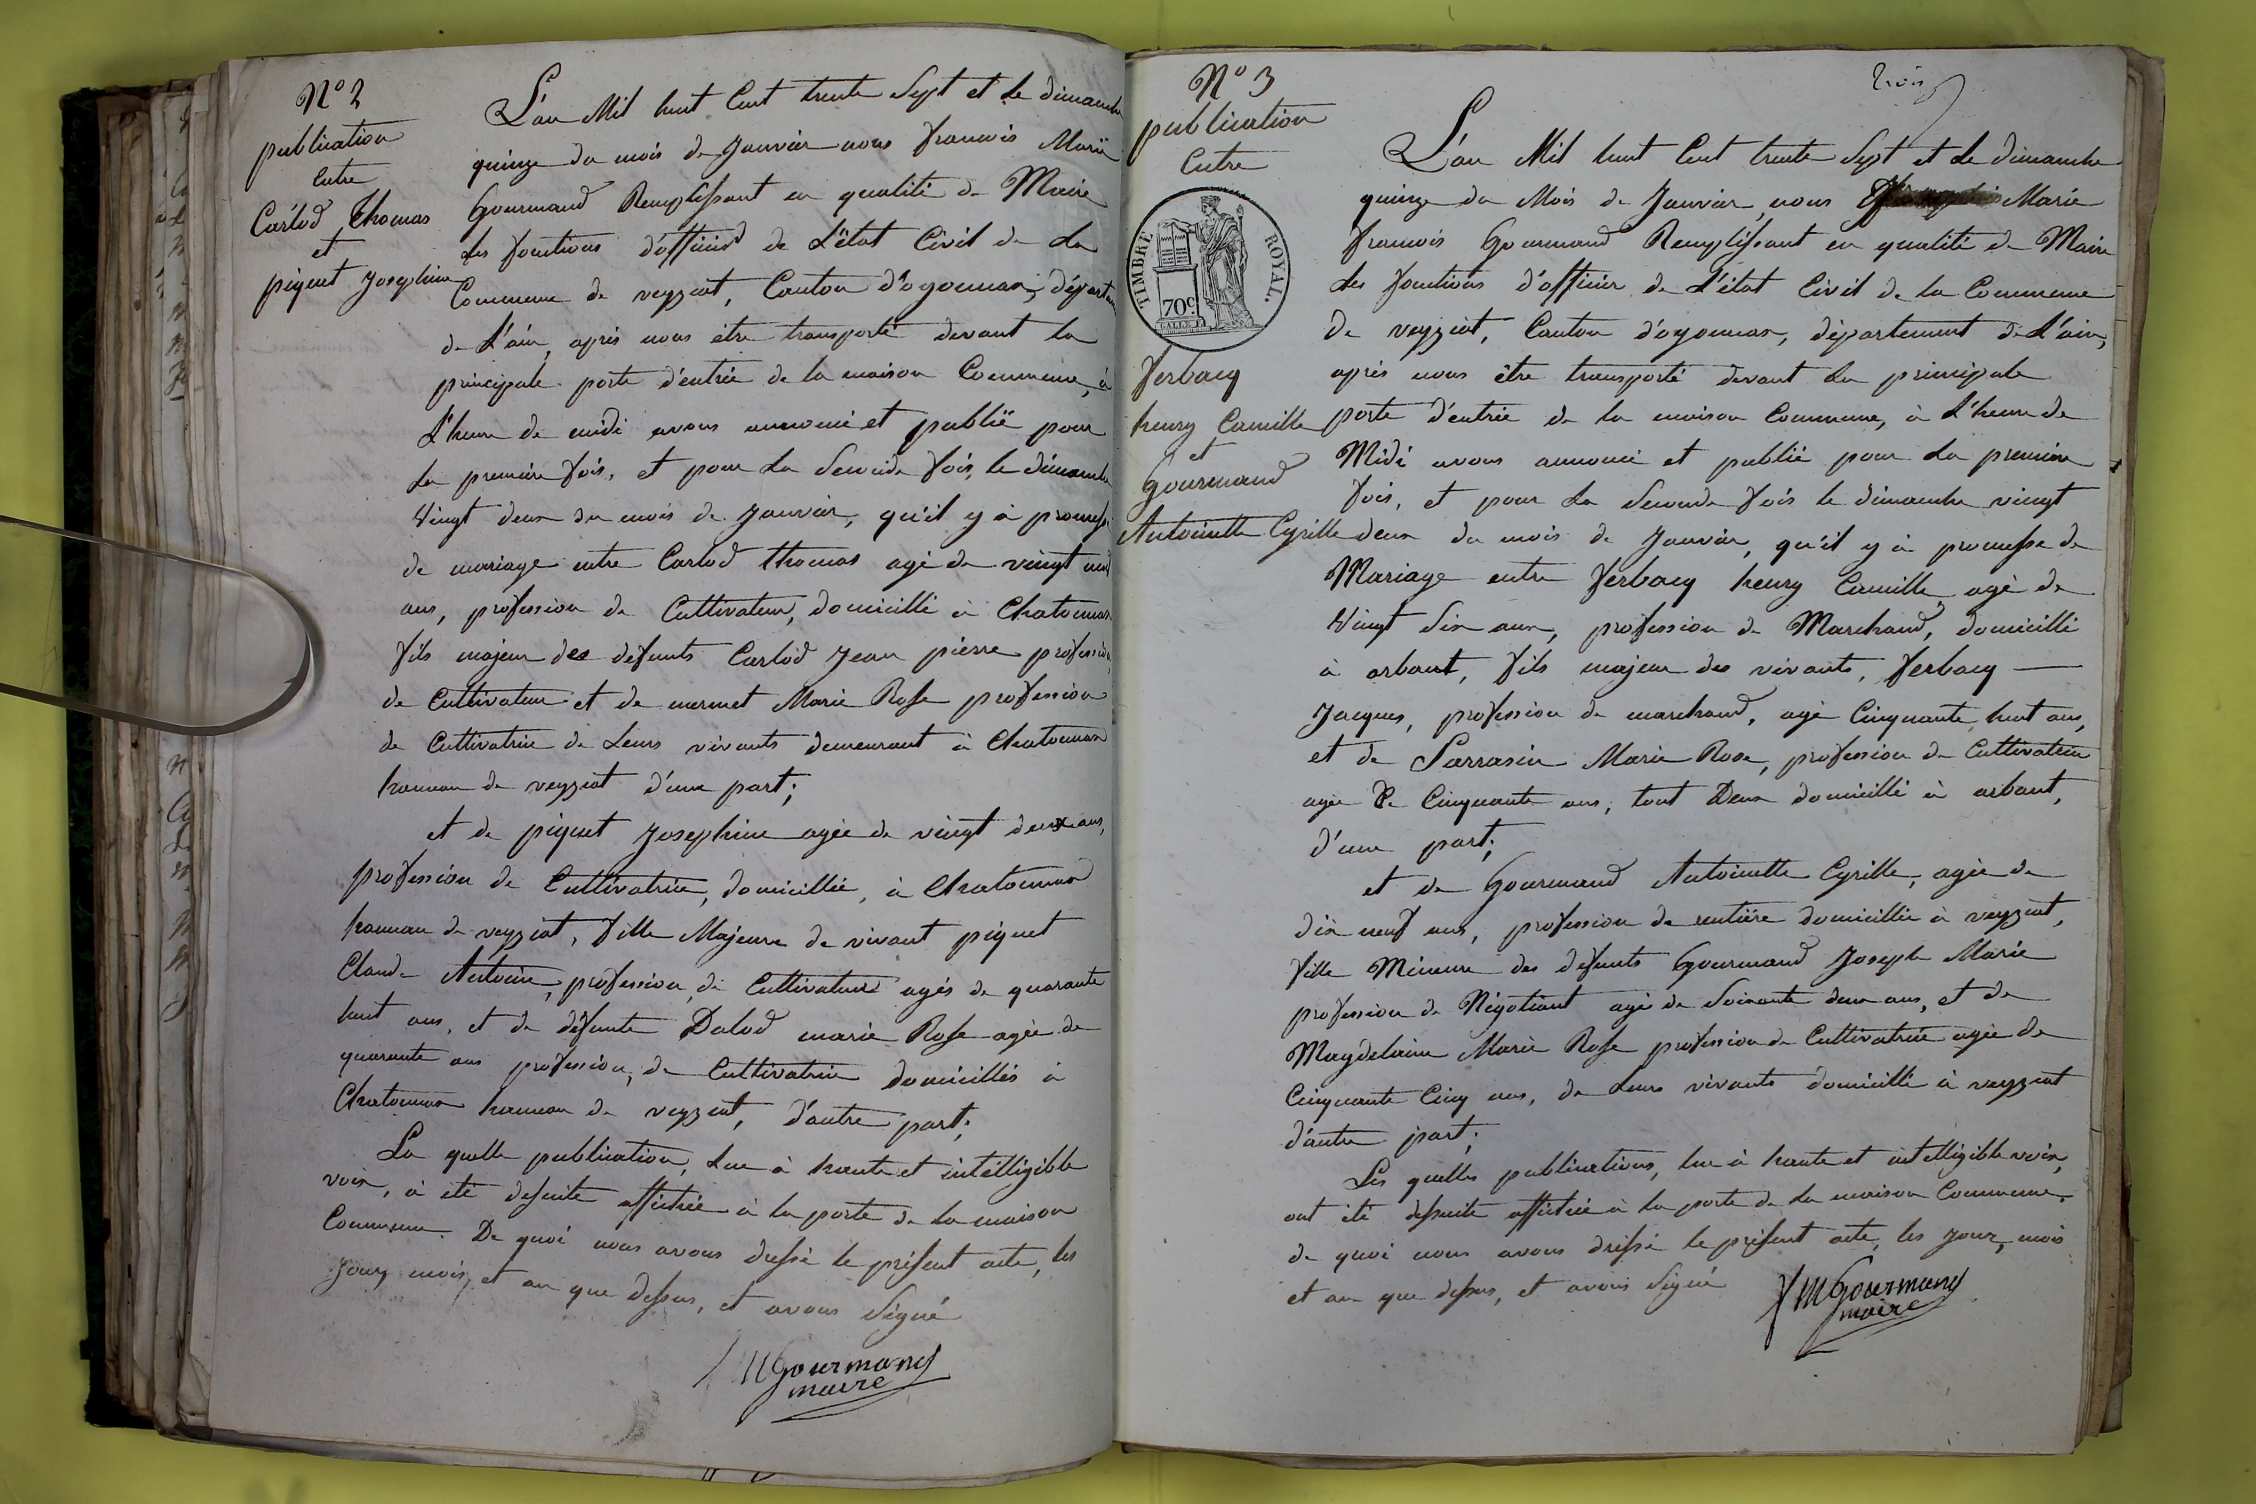 N° 2
publication
Entre
Carlod Thomas
et
piquet Josephine
L'an Mil huit Cent trente Sept et le dimanche
quinze du mois de Janvier nous francois Marie
Gourmand Remplissant en qualité de Maire
les fonctions d'officier de L'état Civil de La
Commune de veyziat, Canton d'oyonnax, départem
de L'ain, après nous être transporté devant la
principale porte d'entrée de la maison Commune, à
L'heure de midi avons annoncé et publié pour
La première fois, et pour La Seconde fois, le dimanche
Vingt deux du mois de Janvier, qu'il y à promesse
de mariage entre Carlod thomas agé de vingt neuf
ans, profession de Cultivateur, domicillié à Chatonnax
fils majeur des defunts Carlod Jean pièrre profession
de Cultivateur et de mermet Marie Rose profession
de Cultivatrice de Leurs vivants demeurant à Chatonnax
hameau de veyziat d'une part;
et de piquet Josephine agée de vingt deux ans,
profession de Cultivatrice, domicilliée, à Chatonnax
hameau de veyziat, fille Majeure de vivant piquet
Claude Antoine, profession de Cultivateur agés de quarante
huit ans, et de défunte Dalod marie Rose agée de
quarante ans profession, de Cultivatrice domicilliés à
Chatonnax hameau de veyziat, d'autre part;
La quelle publication, Lue à haute et intélligible
voix, à été desuite affichée à la porte de la maison
Commune. De quoi nous avons dressé le présent acte, les
jour, mois, et an que dessus, et avons Signé
fMGourmand
maire
trois
N° 3
publication
Entre
TIMBRE ROYAL.
70c.
Ferbacq
henry Camille
et
Gourmand
Antoinette Cyrille
L'an Mil huit Cent trente Sept et Le dimanche
quinze du Mois de Janvier, nous Marie
francois Gourmand Remplissant en qualité de Maire
Les fonctions d'officier de L'état Civil de la Commune
de veyziat, Canton d'oyonnax, département de L'ain,
après nous être transporté devant La principale
porte d'entrée de la maison Commune, à L'heure de
Midi avons annoncé et publié pour La première
fois, et pour La Seconde fois le dimanche vingt
deux du mois de Janvier, qu'il y à promesse de
Mariage entre Ferbacq henry Camille, agé de
Vingt Six ans, profession de Marchand, domicillié
à arbant, fils majeur des vivants, Ferbacq —
Jacques, profession de marchand, agé Cinquante huit ans,
et de Sarrasin Marie Rose, profession de Cultivatrice
agée De Cinquante ans, tout Deux domicillié à arbant,
d'une part;
et de Gourmand Antoinette Cyrille, agée de
dix neuf ans, profession de rentière domicilliée à veyziat,
fille Mineure des défunts Gourmand Joseph Marie
profession de Négotiant agé de Soixante deux ans, et de
Magdelaine Marie Rose profession de Cultivatrice agée de
Cinquante Cinq ans, de Leurs vivants domicillié à veyziat
d'autre part;
Les quelles publications, lue à haute et intelligible voix,
ont été desuite affichée à la porte de La maison Commune.
de quoi nous avons dréssé le présent acte, les jour, mois
et an que dessus, et avons Signé
fMGourmand
maire